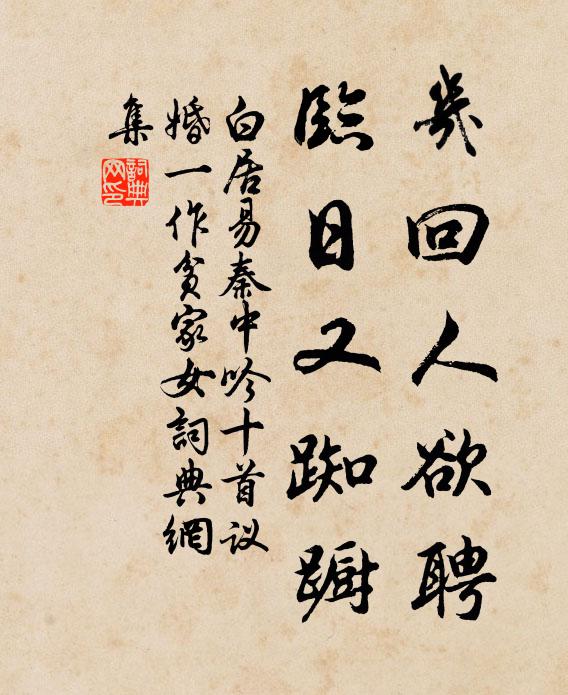 幾回人欲聘
臨日又踟躕
白居易秦中吟十首议
婚一作贫家女詞典網
集
詞典
网印